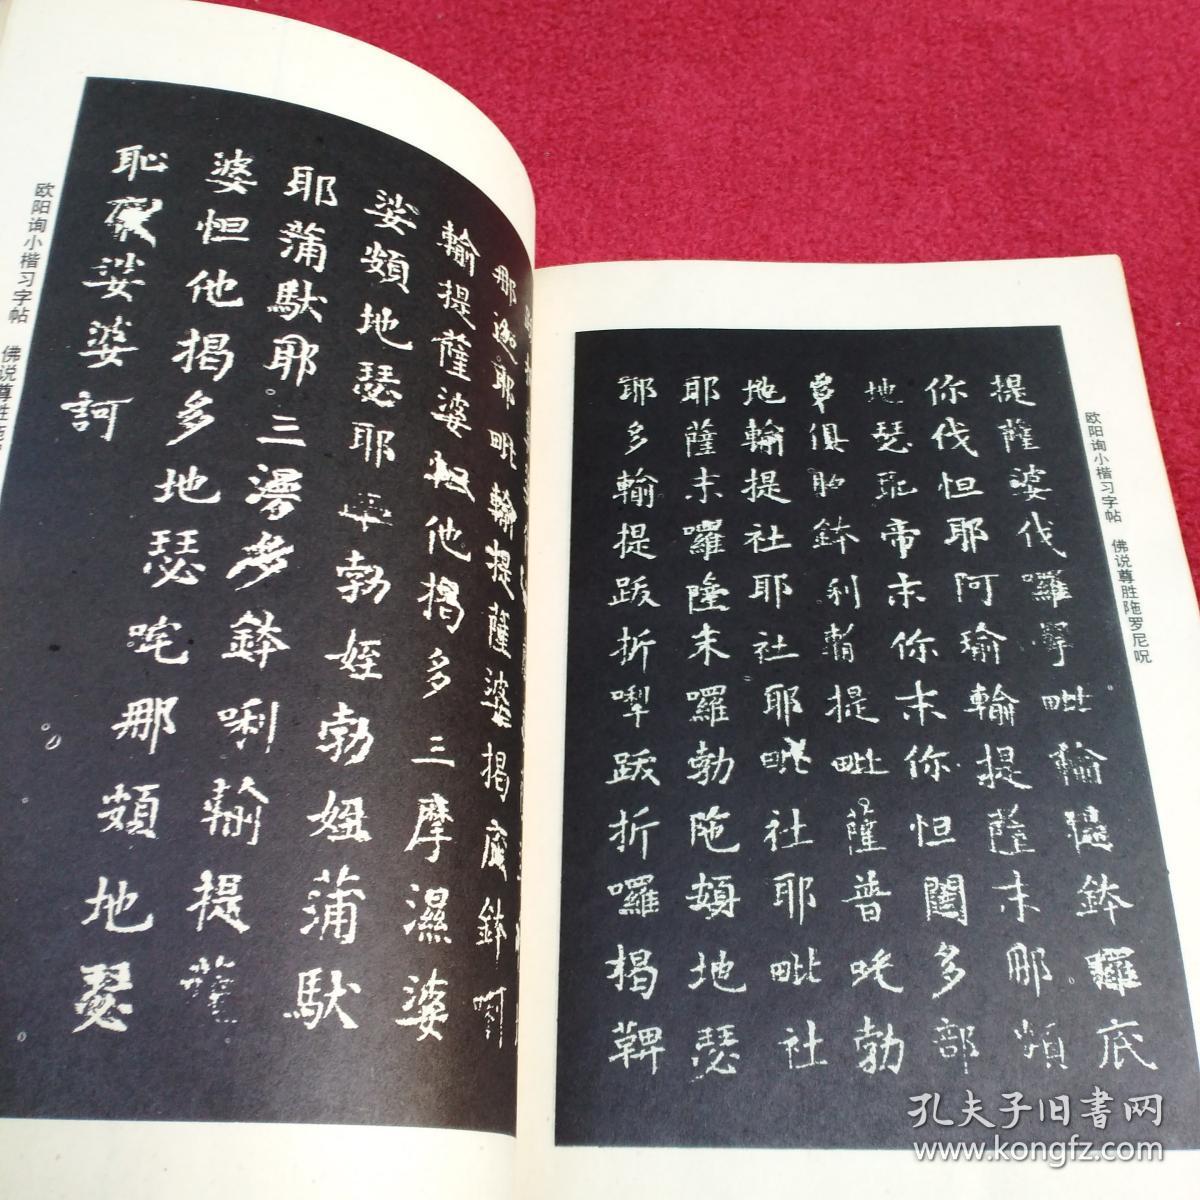 欧阳询小楷习字帖　佛说尊胜陁罗尼呪
提薩婆伐囉孥毗輸提鉢羅底
你伐怛耶阿瑜輸提薩末那頞
地瑟耽帝末你末你怛闥多部
俱胝鉢利輸提毗薩普吒勃
地輸提社耶社耶毗社耶毗社
耶薩末囉薩末囉勃陁頞地瑟
耶多輸提跋折跋折囉揭鞞
那耶毗輸提薩婆揭底鉢唎
輸提薩婆怛他揭多三摩濕婆
娑頞地瑟耶勃姪勃蒲馱
耶蒲馱耶三漫多鉢唎輸提薩
婆怛他揭多地瑟咤那頞地瑟
恥娑婆訶
欧阳询小楷习字帖　佛说尊胜陁
孔夫子旧书网
www.kongfz.com